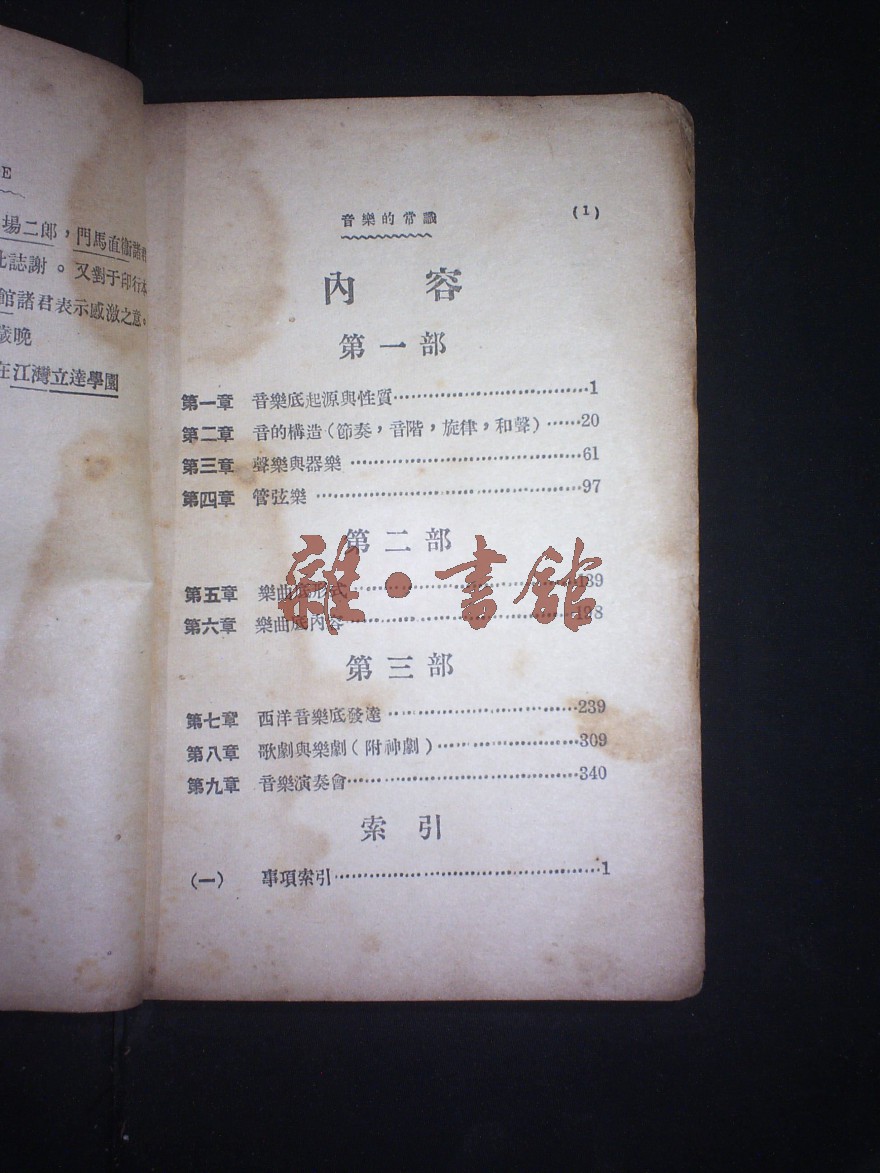 E
場二郎，門馬直衞諸
誌謝。又對于印行本
館諸君表示感激之意。
歲晚
在江灣立達學園
音樂的常識
(1)
內容
第一部
第一章 音樂底起源與性質……………………………1
第二章 音的構造(節奏，音階，旋律，和聲)……20
第三章 聲樂與器樂……………………………61
第四章 管弦樂……………………………97
第二部
第五章 樂曲底形式……………………………139
第六章 樂曲底內容……………………………198
第三部
第七章 西洋音樂底發達……………………………239
第八章 歌劇與樂劇(附神劇)……………………309
第九章 音樂演奏會……………………………340
索引
(一) 事項索引……………………………1
雜·書館